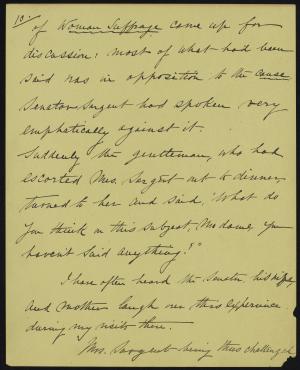 10.
of Woman Suffrage came up for
discussion: most of what had been
said was in opposition to the cause
Senator Sargent had spoken very
emphatically against it.
Suddenly the gentleman, who had
escorted Mrs. Sargent out to dinner,
turned to her and said, "What do
you think on this subject, Madame, you
haven't said anything?"
I have often heard the Senator, his wife,
and Mother laugh over this experience
during my visits there.
Mrs. Sargent being thus challenged